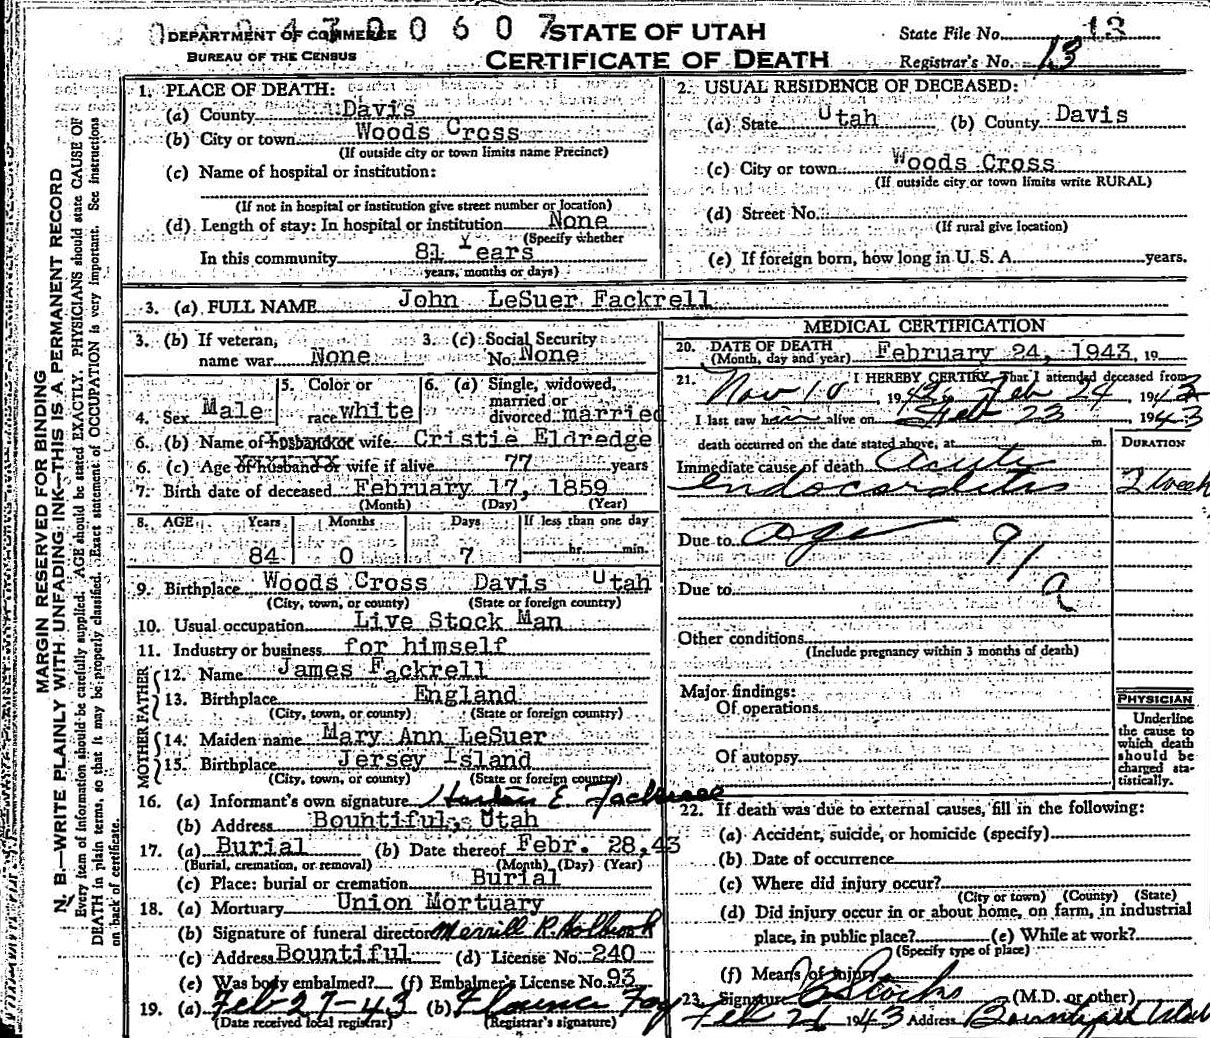 0 0 0 4 3 0 0 6 0 7
DEPARTMENT OF COMMERCE
BUREAU OF THE CENSUS
STATE OF UTAH
CERTIFICATE OF DEATH
State File No. 13
Registrar's No. 13
MARGIN RESERVED FOR BINDING
N. B.—WRITE PLAINLY WITH UNFADING INK—THIS IS A PERMANENT RECORD
Every item of information should be carefully supplied. AGE should be stated EXACTLY. PHYSICIANS should state CAUSE OF
DEATH in plain terms, so that it may be properly classified. Exact statement of OCCUPATION is very important. See instructions
on back of certificate.
1. PLACE OF DEATH:
(a) County Davis
(b) City or town Woods Cross
(If outside city or town limits name Precinct)
(c) Name of hospital or institution:
(If not in hospital or institution give street number or location)
(d) Length of stay: In hospital or institution None
(Specify whether
In this community 81 Years
years, months or days)
2. USUAL RESIDENCE OF DECEASED:
(a) State Utah (b) County Davis
(c) City or town Woods Cross
(If outside city or town limits write RURAL)
(d) Street No.
(If rural give location)
(e) If foreign born, how long in U. S. A. years.
3. (a) FULL NAME John LeSuer Fackrell
3. (b) If veteran, name war None
3. (c) Social Security No. None
4. Sex Male
5. Color or race white
6. (a) Single, widowed, married or divorced married
6. (b) Name of husband or wife Cristie Eldredge
6. (c) Age of husband or wife if alive 77 years
7. Birth date of deceased February 17, 1859
(Month) (Day) (Year)
8. AGE Years Months Days If less than one day
84 0 7 hr. min.
9. Birthplace Woods Cross Davis Utah
(City, town, or county) (State or foreign country)
10. Usual occupation Live Stock Man
11. Industry or business for himself
FATHER
12. Name James Fackrell
13. Birthplace England
(City, town, or county) (State or foreign country)
MOTHER
14. Maiden name Mary Ann LeSuer
15. Birthplace Jersey Island
(City, town, or county) (State or foreign country)
16. (a) Informant's own signature E. Fackrell
(b) Address Bountiful, Utah
17. (a) Burial (b) Date thereof Febr. 28, 43
(Burial, cremation, or removal) (Month) (Day) (Year)
(c) Place: burial or cremation Burial
18. (a) Mortuary Union Mortuary
(b) Signature of funeral director Merrill R. Holbrook
(c) Address Bountiful (d) License No. 240
(e) Was body embalmed? (f) Embalmer's License No. 93
19. (a) Feb 27-43 (b) Florence Foy
(Date received local registrar) (Registrar's signature)
MEDICAL CERTIFICATION
20. DATE OF DEATH
(Month, day and year) February 24, 1943, 19
21. I HEREBY CERTIFY, That I attended deceased from
Nov 10, 1942, Feb 24, 1943
I last saw him alive on Feb 23 1943
death occurred on the date stated above, at m.
DURATION
Immediate cause of death Acute
endocarditis 2 week
Due to age 91
Due to a
Other conditions
(Include pregnancy within 3 months of death)
Major findings:
Of operations
Of autopsy
PHYSICIAN
Underline
the cause to
which death
should be
charged sta-
tistically.
22. If death was due to external causes, fill in the following:
(a) Accident, suicide, or homicide (specify)
(b) Date of occurrence
(c) Where did injury occur?
(City or town) (County) (State)
(d) Did injury occur in or about home, on farm, in industrial
place, in public place? (e) While at work?
(Specify type of place)
(f) Means of injury
23. Signature Stocks (M.D. or other)
Feb 1943 Address Bountiful Utah